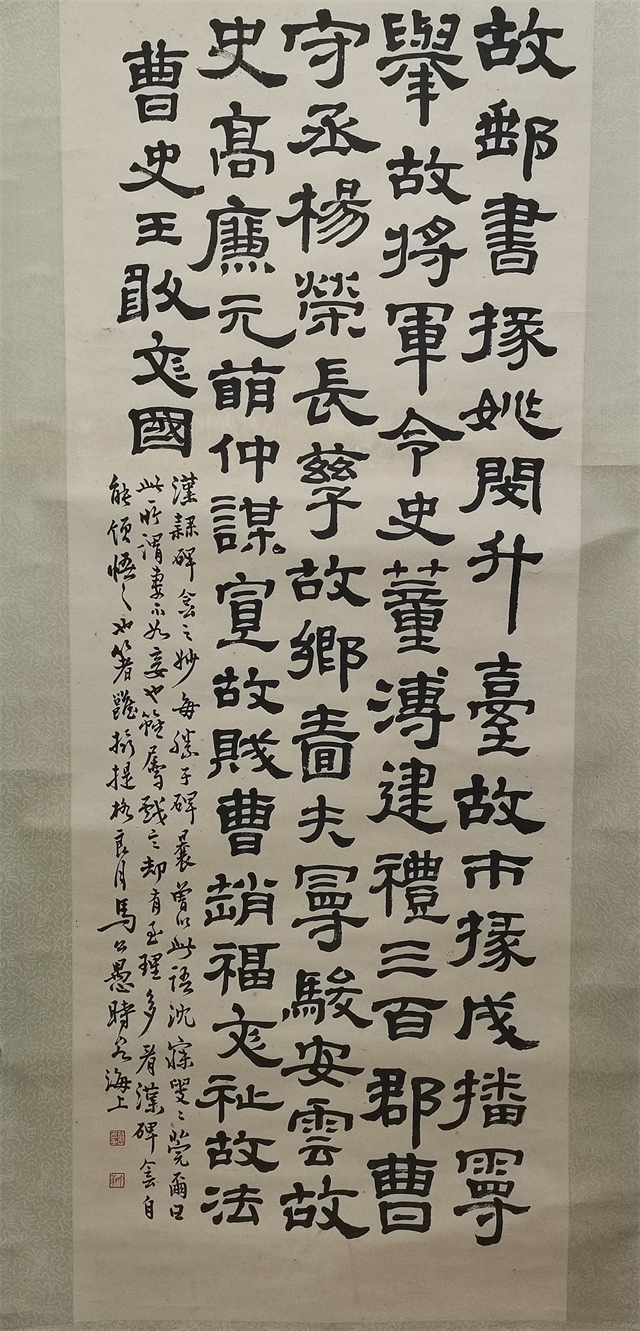 故郵書掾姚閔升臺故市掾成播曼
舉故將軍令史董溥建禮三百郡曹
守丞楊榮長孳故鄉嗇夫曼駿安雲故
史高廉元萌仲謀宣故賊曹趙福文祉故法
曹史王敢文國
漢隸碑侌之妙每勝于碑曩曾以此語沈寐叟〻莞爾曰
此所謂妻不如妾也雖屬戲言却有至理多看漢碑侌自
能領悟之也箸雝攝提格良月馬公愚時客海上